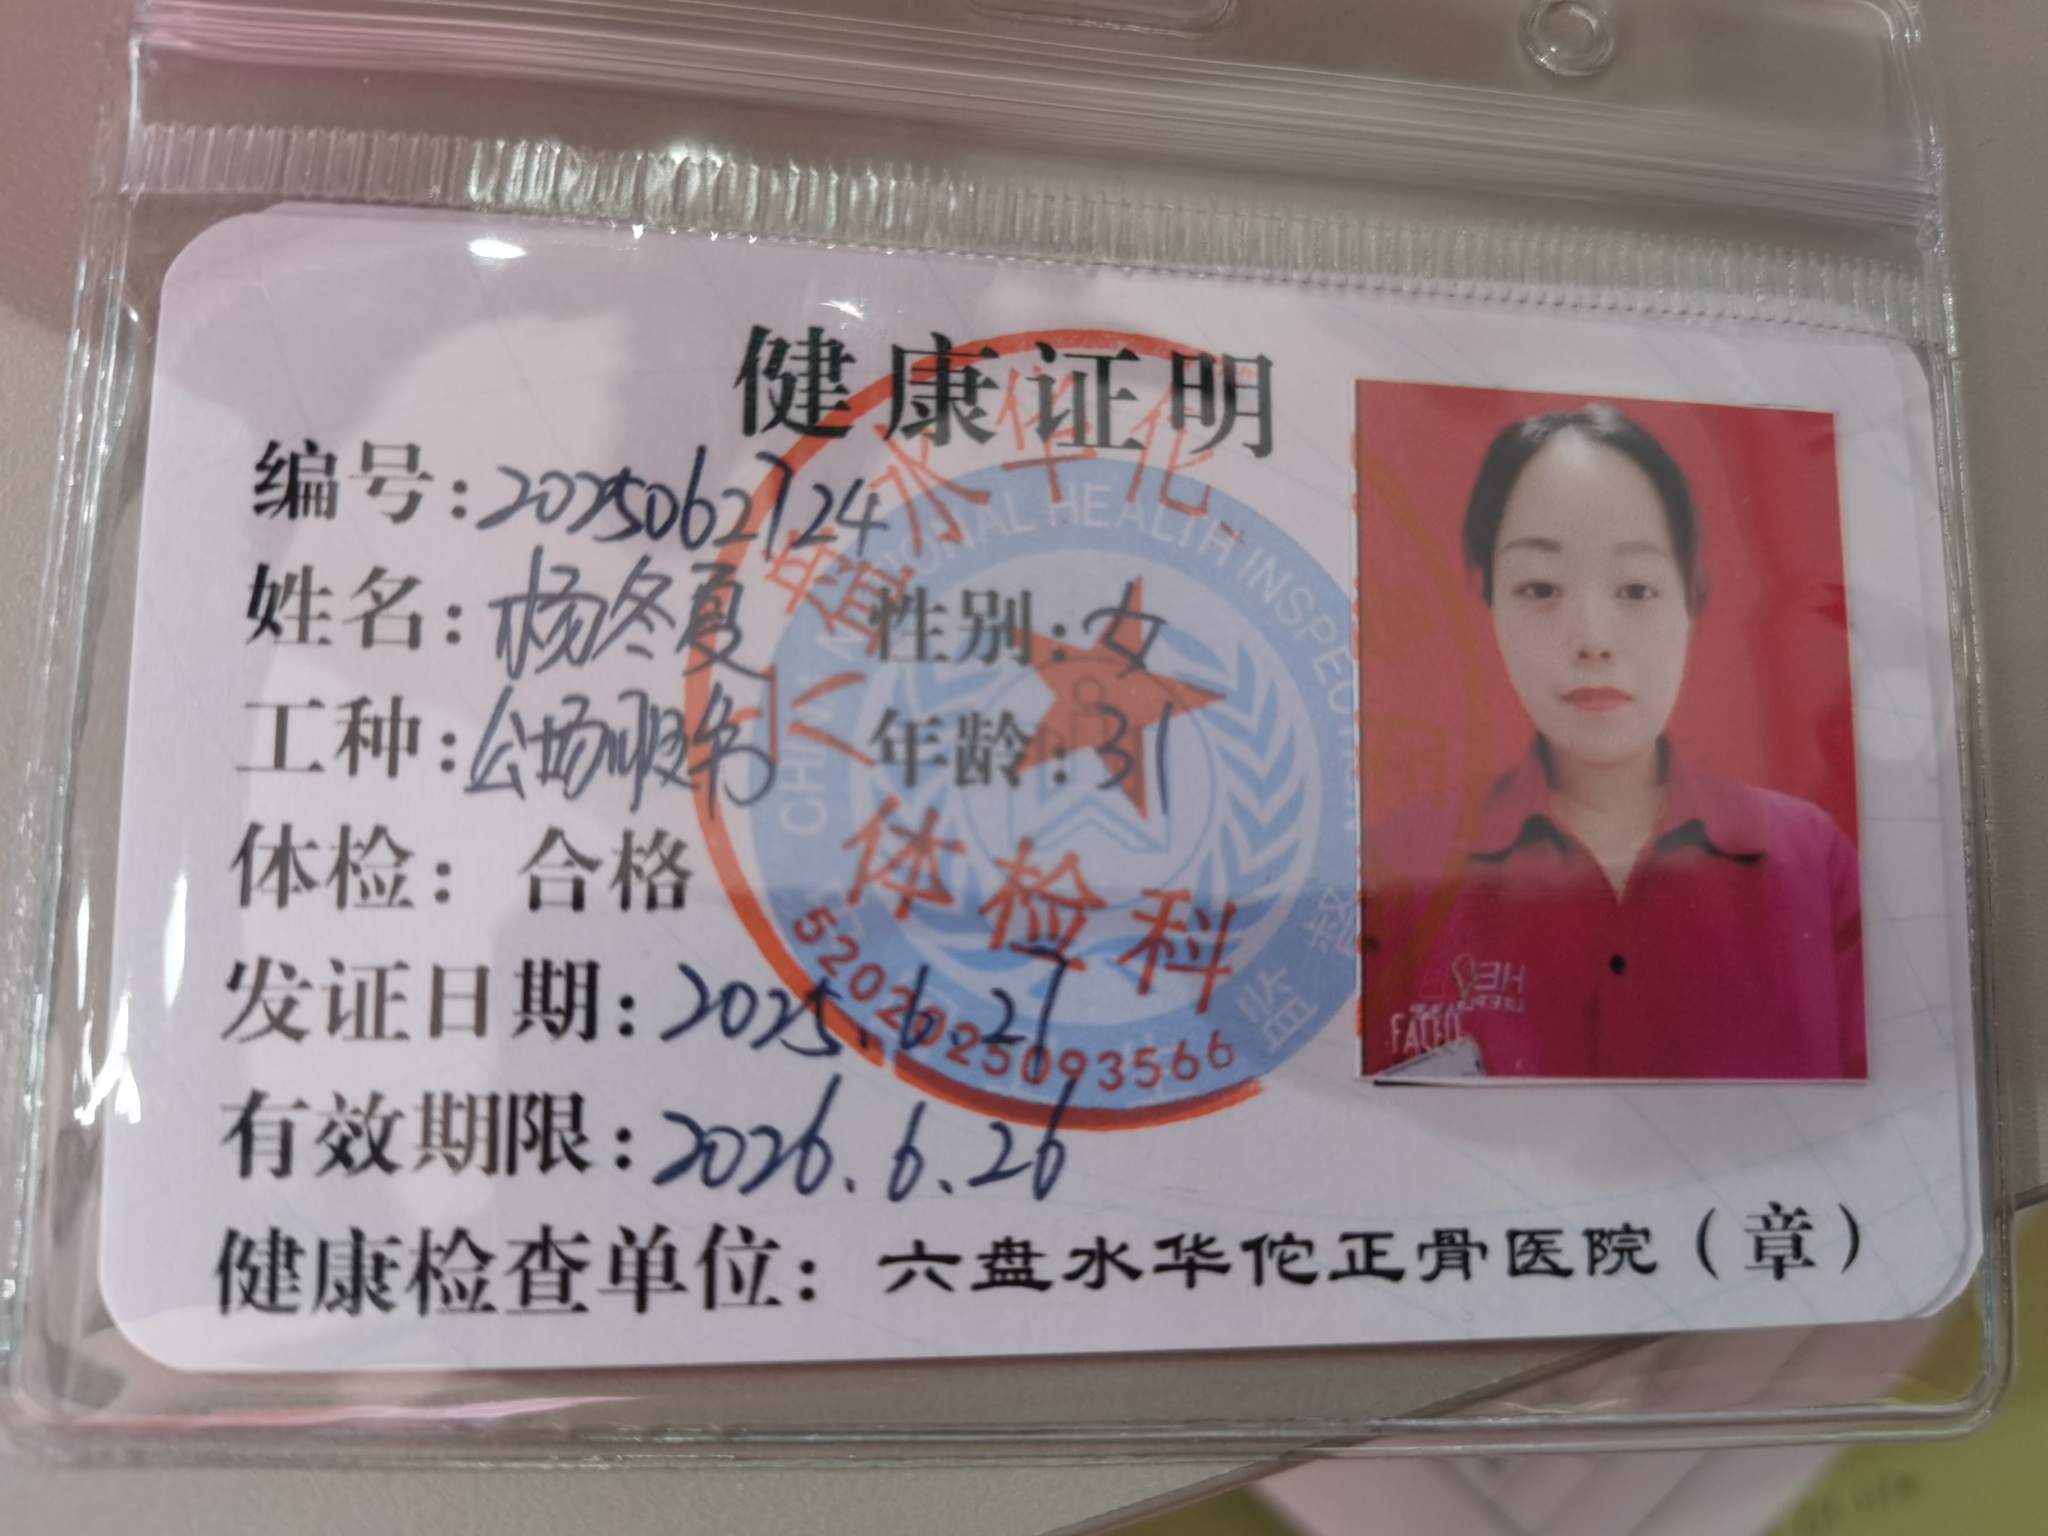 健康证明
编号：2025062724
姓名：杨冬夏 性别：女
工种：公场服务 年龄：31
体检：合格
发证日期：2025.6.27
有效期限：2026.6.26
健康检查单位：六盘水华佗正骨医院（章）
六盘水华佗
体检科
5202025093566
NATIONAL HEALTH INSPECTION